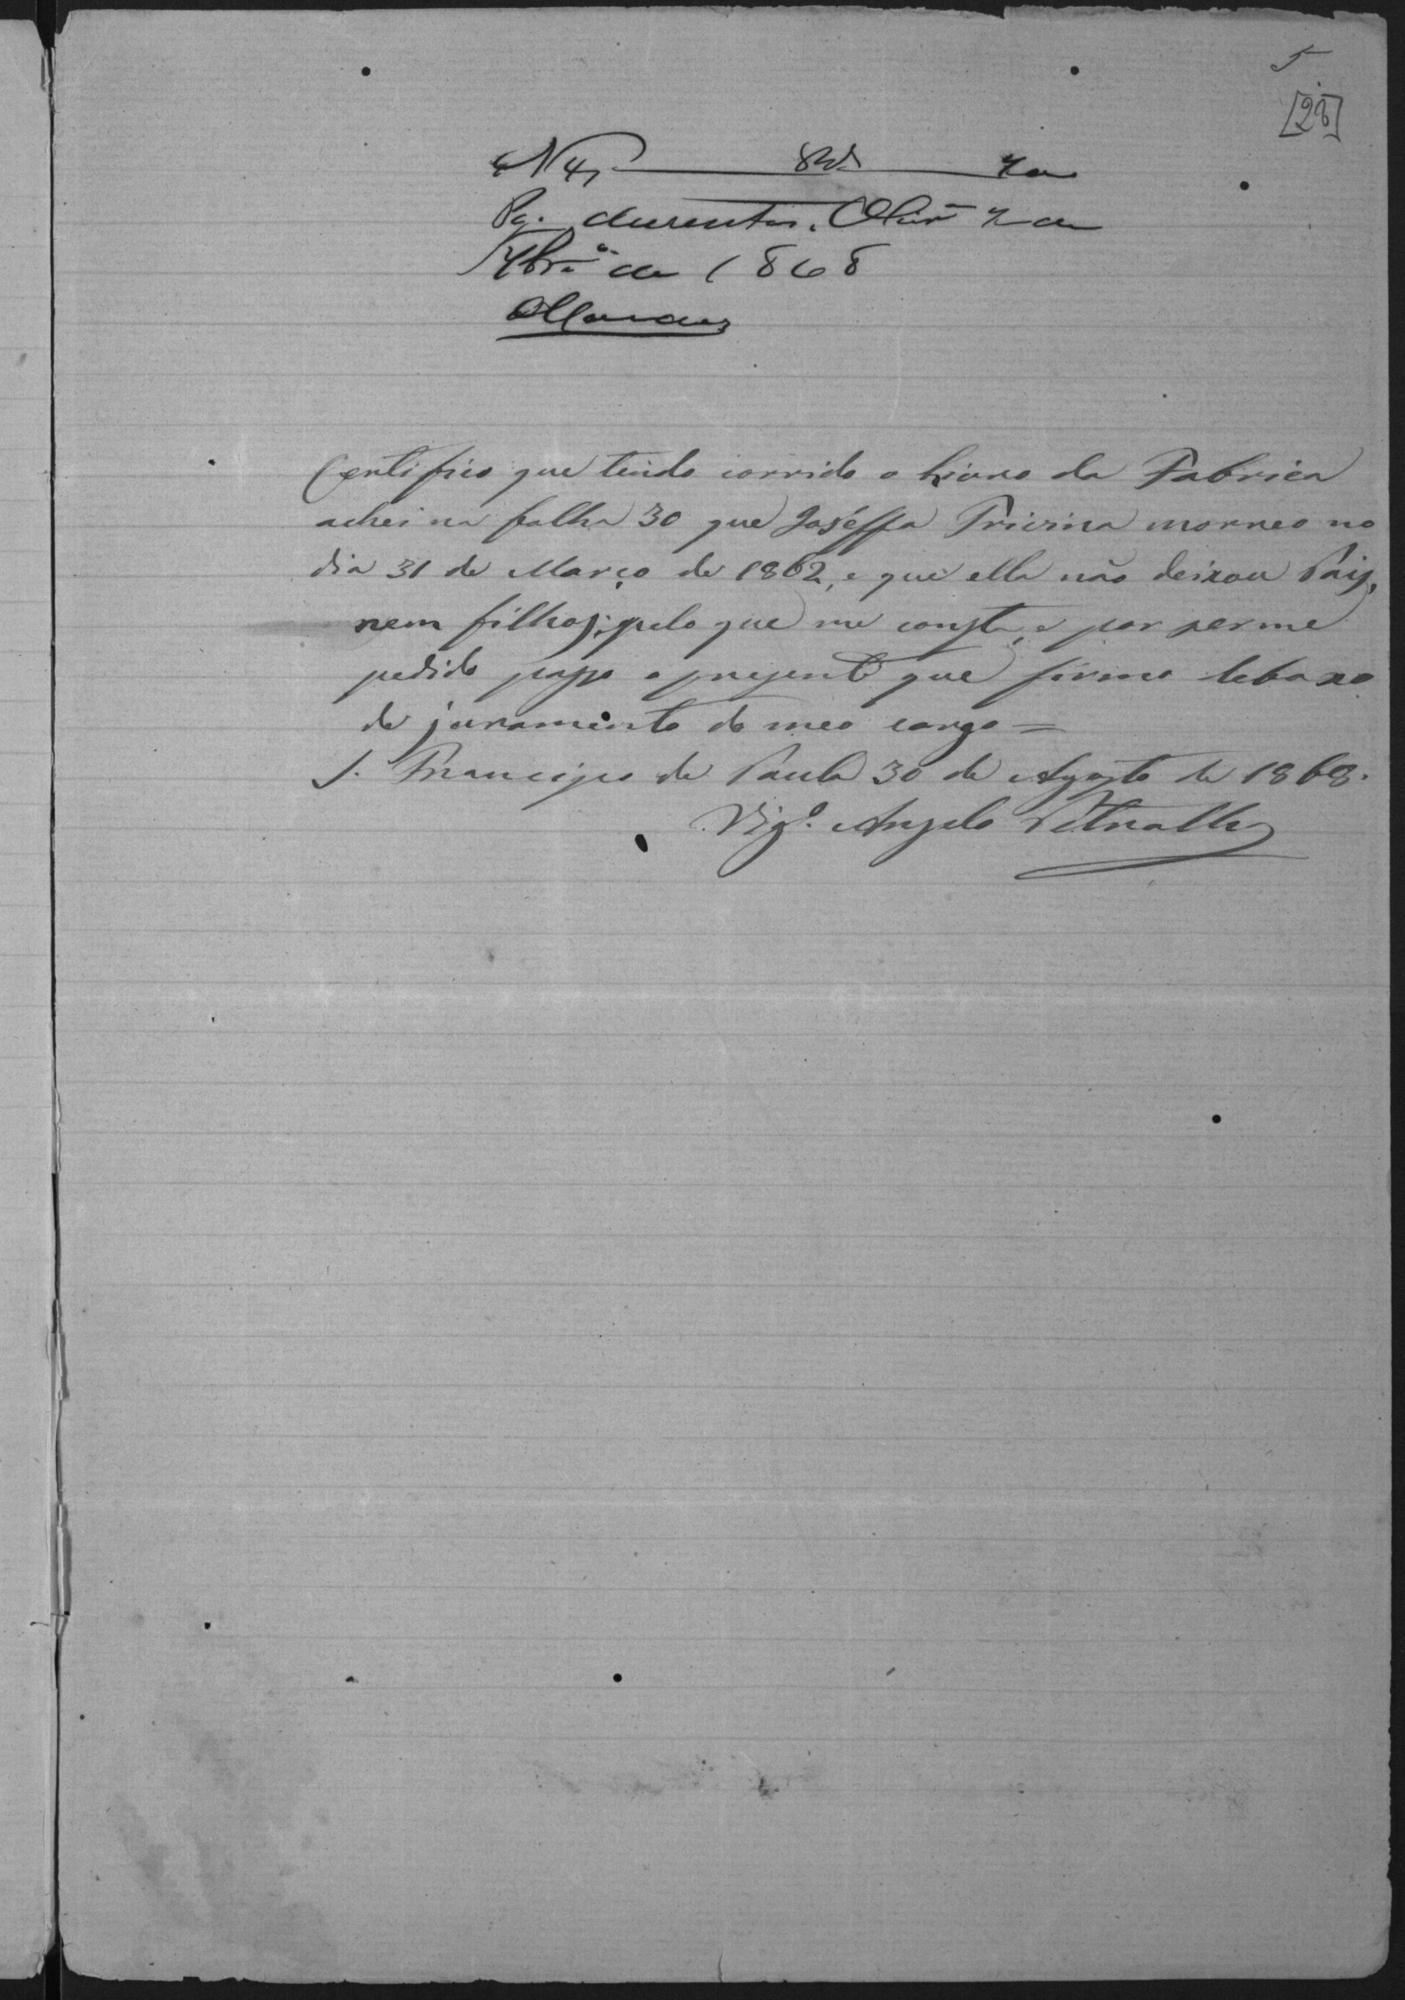 5
[28]
N 4
Pg. duzentos.
7br.º de 1868
Certifico que tendo corrido o Livro da Fabrica
achei na folha 30 que Joséffa morreo no
dia 31 de Março de 1862, e que ella não deixou Pais,
nem filhos; pelo que me consta, e por ser me
pedido passo o presente que firmo debaxo
de juramento do meo cargo =
S. Francisco de Paula 30 de Agosto de 1868.
Vigº. Angelo